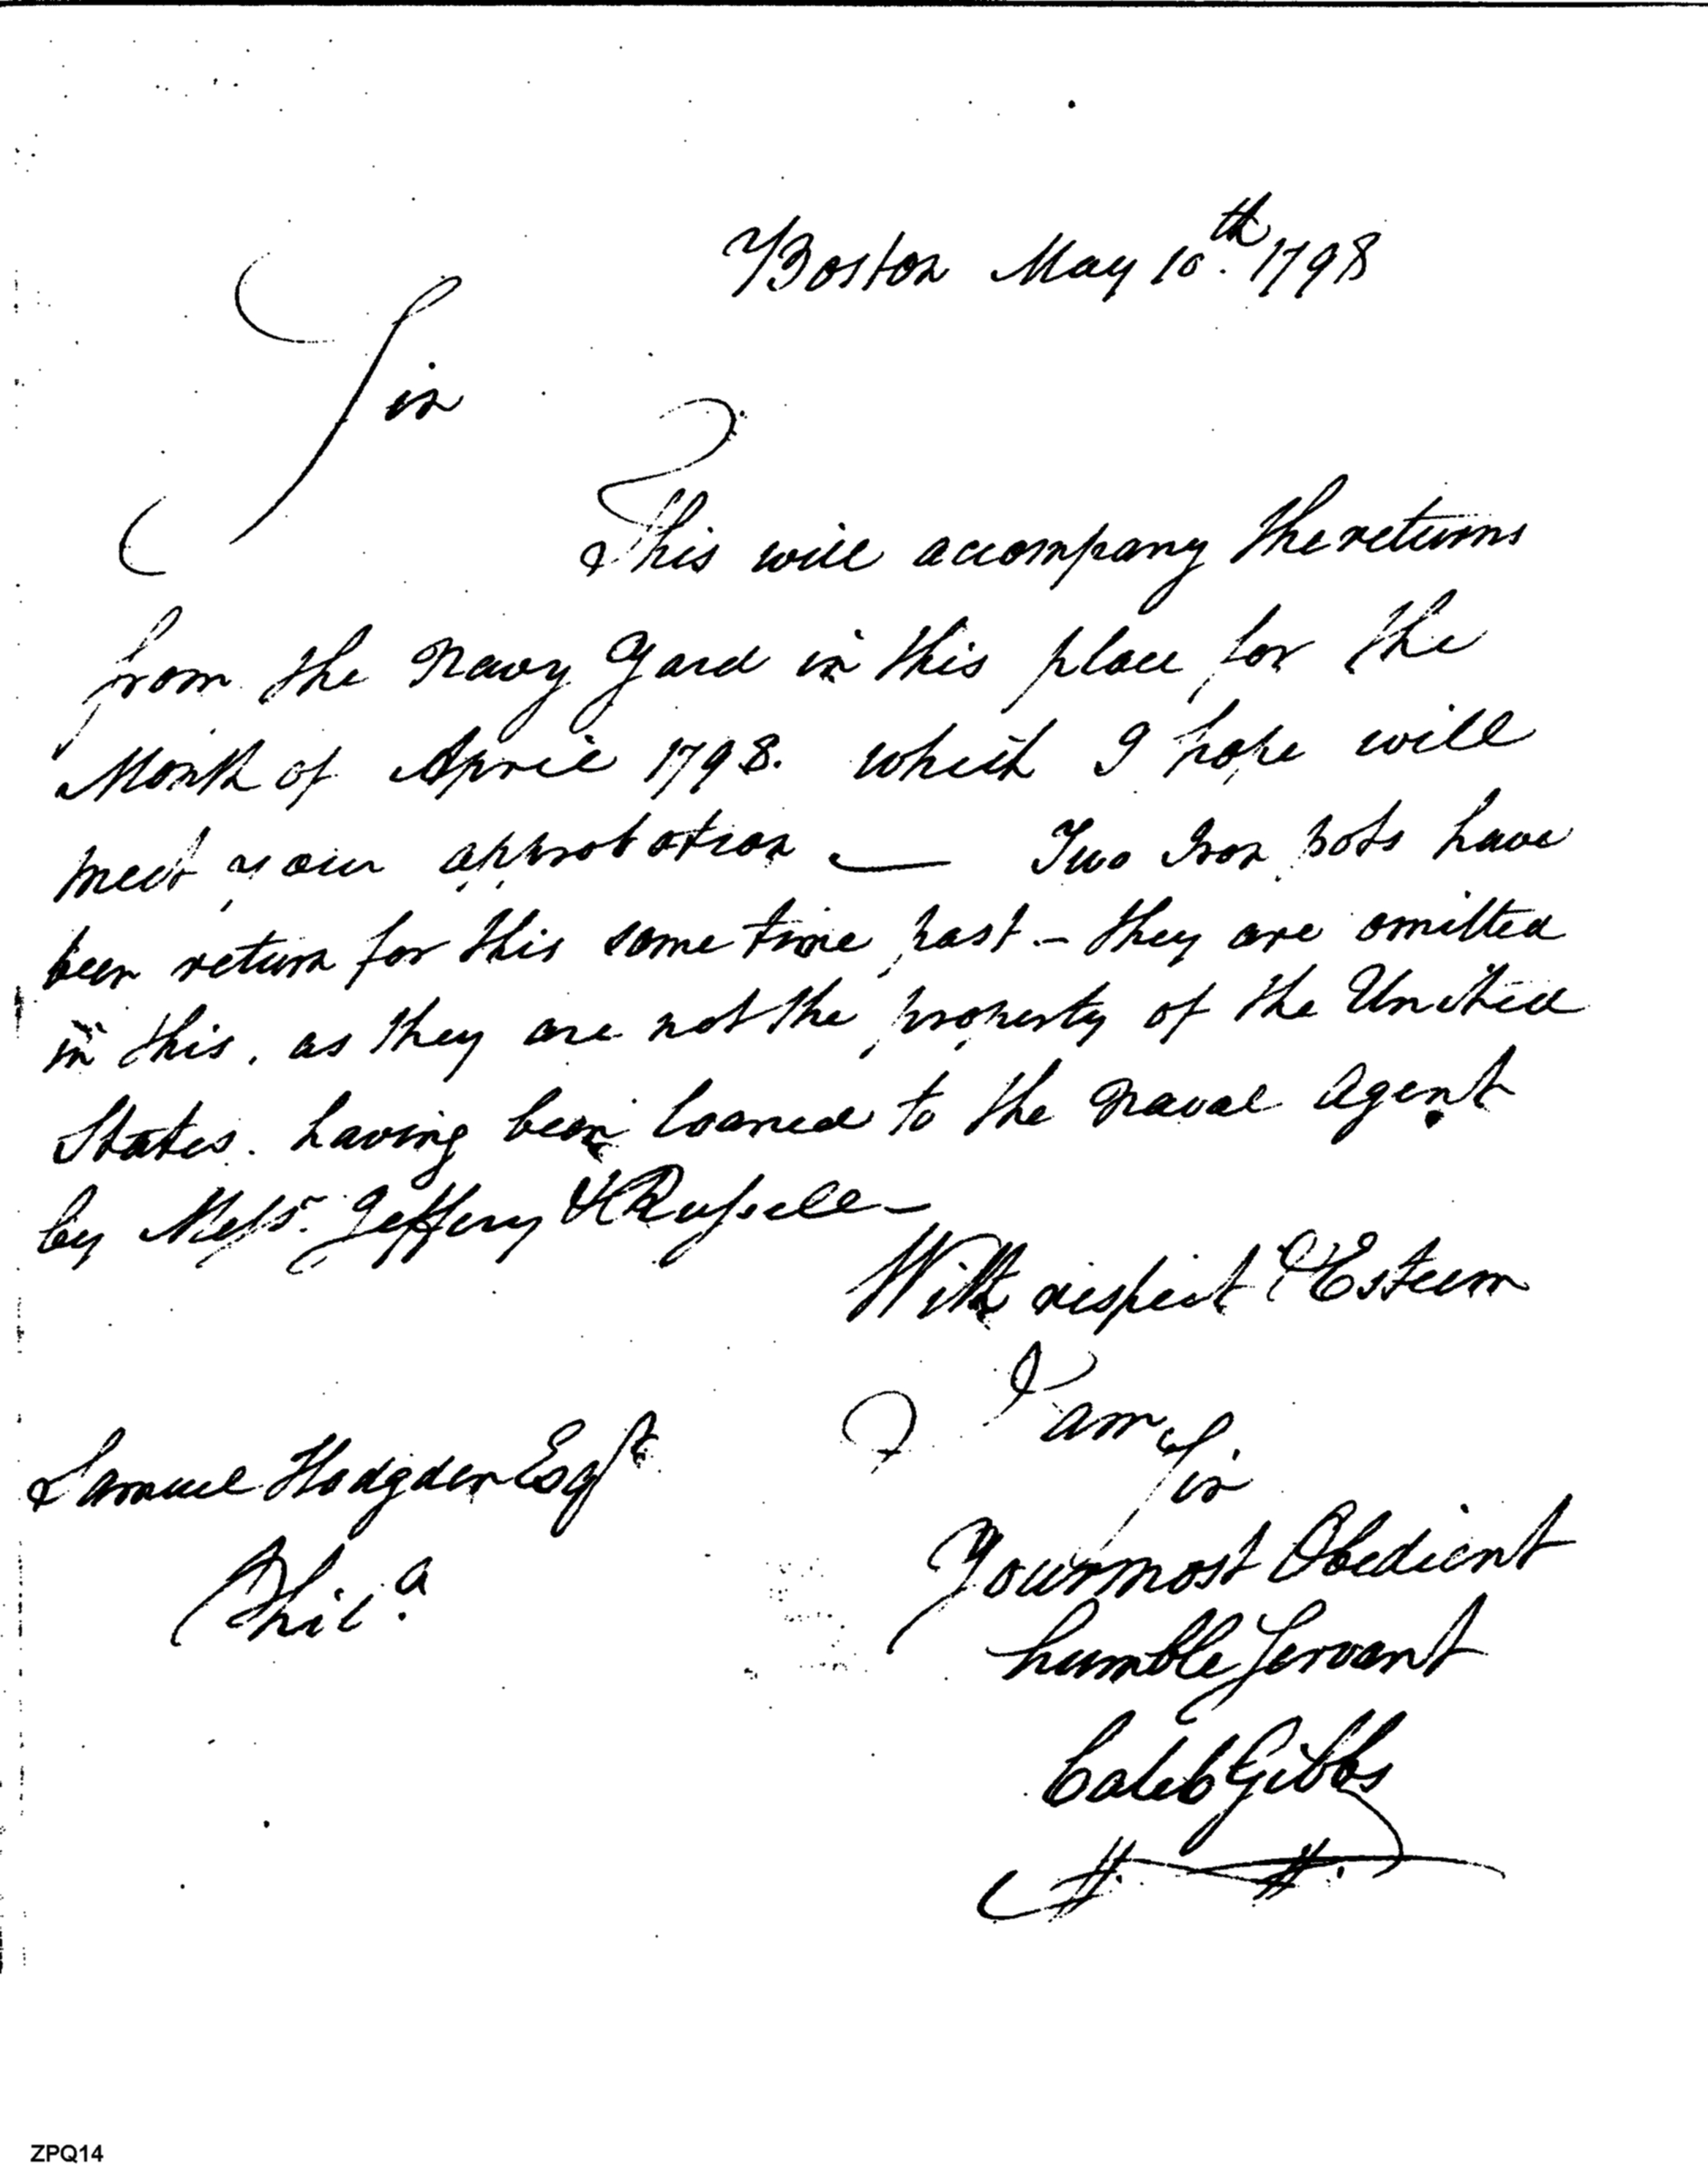 Boston May 10th. 1798
Sir
This will accompany the returns
from the Navy Yard in this place for the
Month of April 1798. which I hope will
meet your approbation — Two Iron pots have
been return for this some time past. – they are omitted
in this, as they are not the property of the United
States. having been loaned to the Naval Agent
by Messrs. Jeffery & Russell –
With respect & Esteem
I am Sir
Samuel Hodgden Esqr
Phila.
Your most Obedient
humble Servant
Caleb Gibbs
ZPQ14